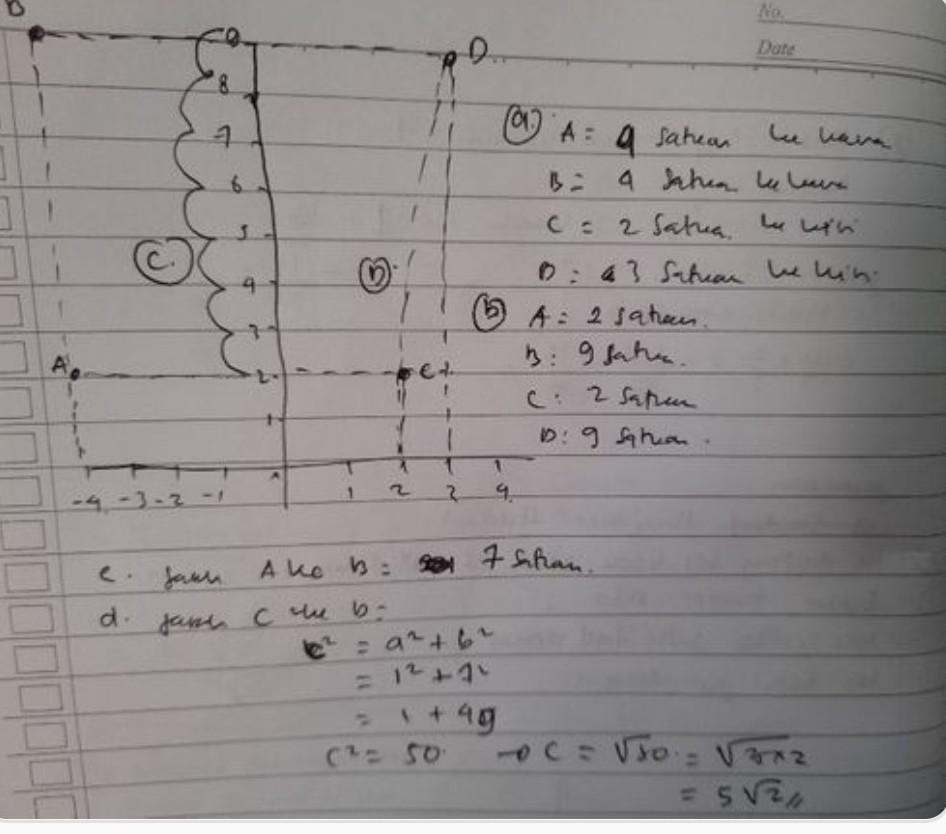 No.
Date
B
9
D
8
7
6
5
C.
4
D
3
A
2
C
1
-4 -3 -2 -1 1 2 3 4
a. A = 4 satuan ke kanan
B = 4 satuan ke kanan
C = 2 satuan ke kiri
D = 3 satuan ke kiri
b A = 2 satuan.
B: 9 satuan.
C: 2 satuan
D: 9 satuan.
c. jarak A ke B = 7 satuan.
d. jarak C ke D =
c² = a² + b²
= 1² + 7²
= 1 + 49
C² = 50 → C = √50 =
= 5√2 //